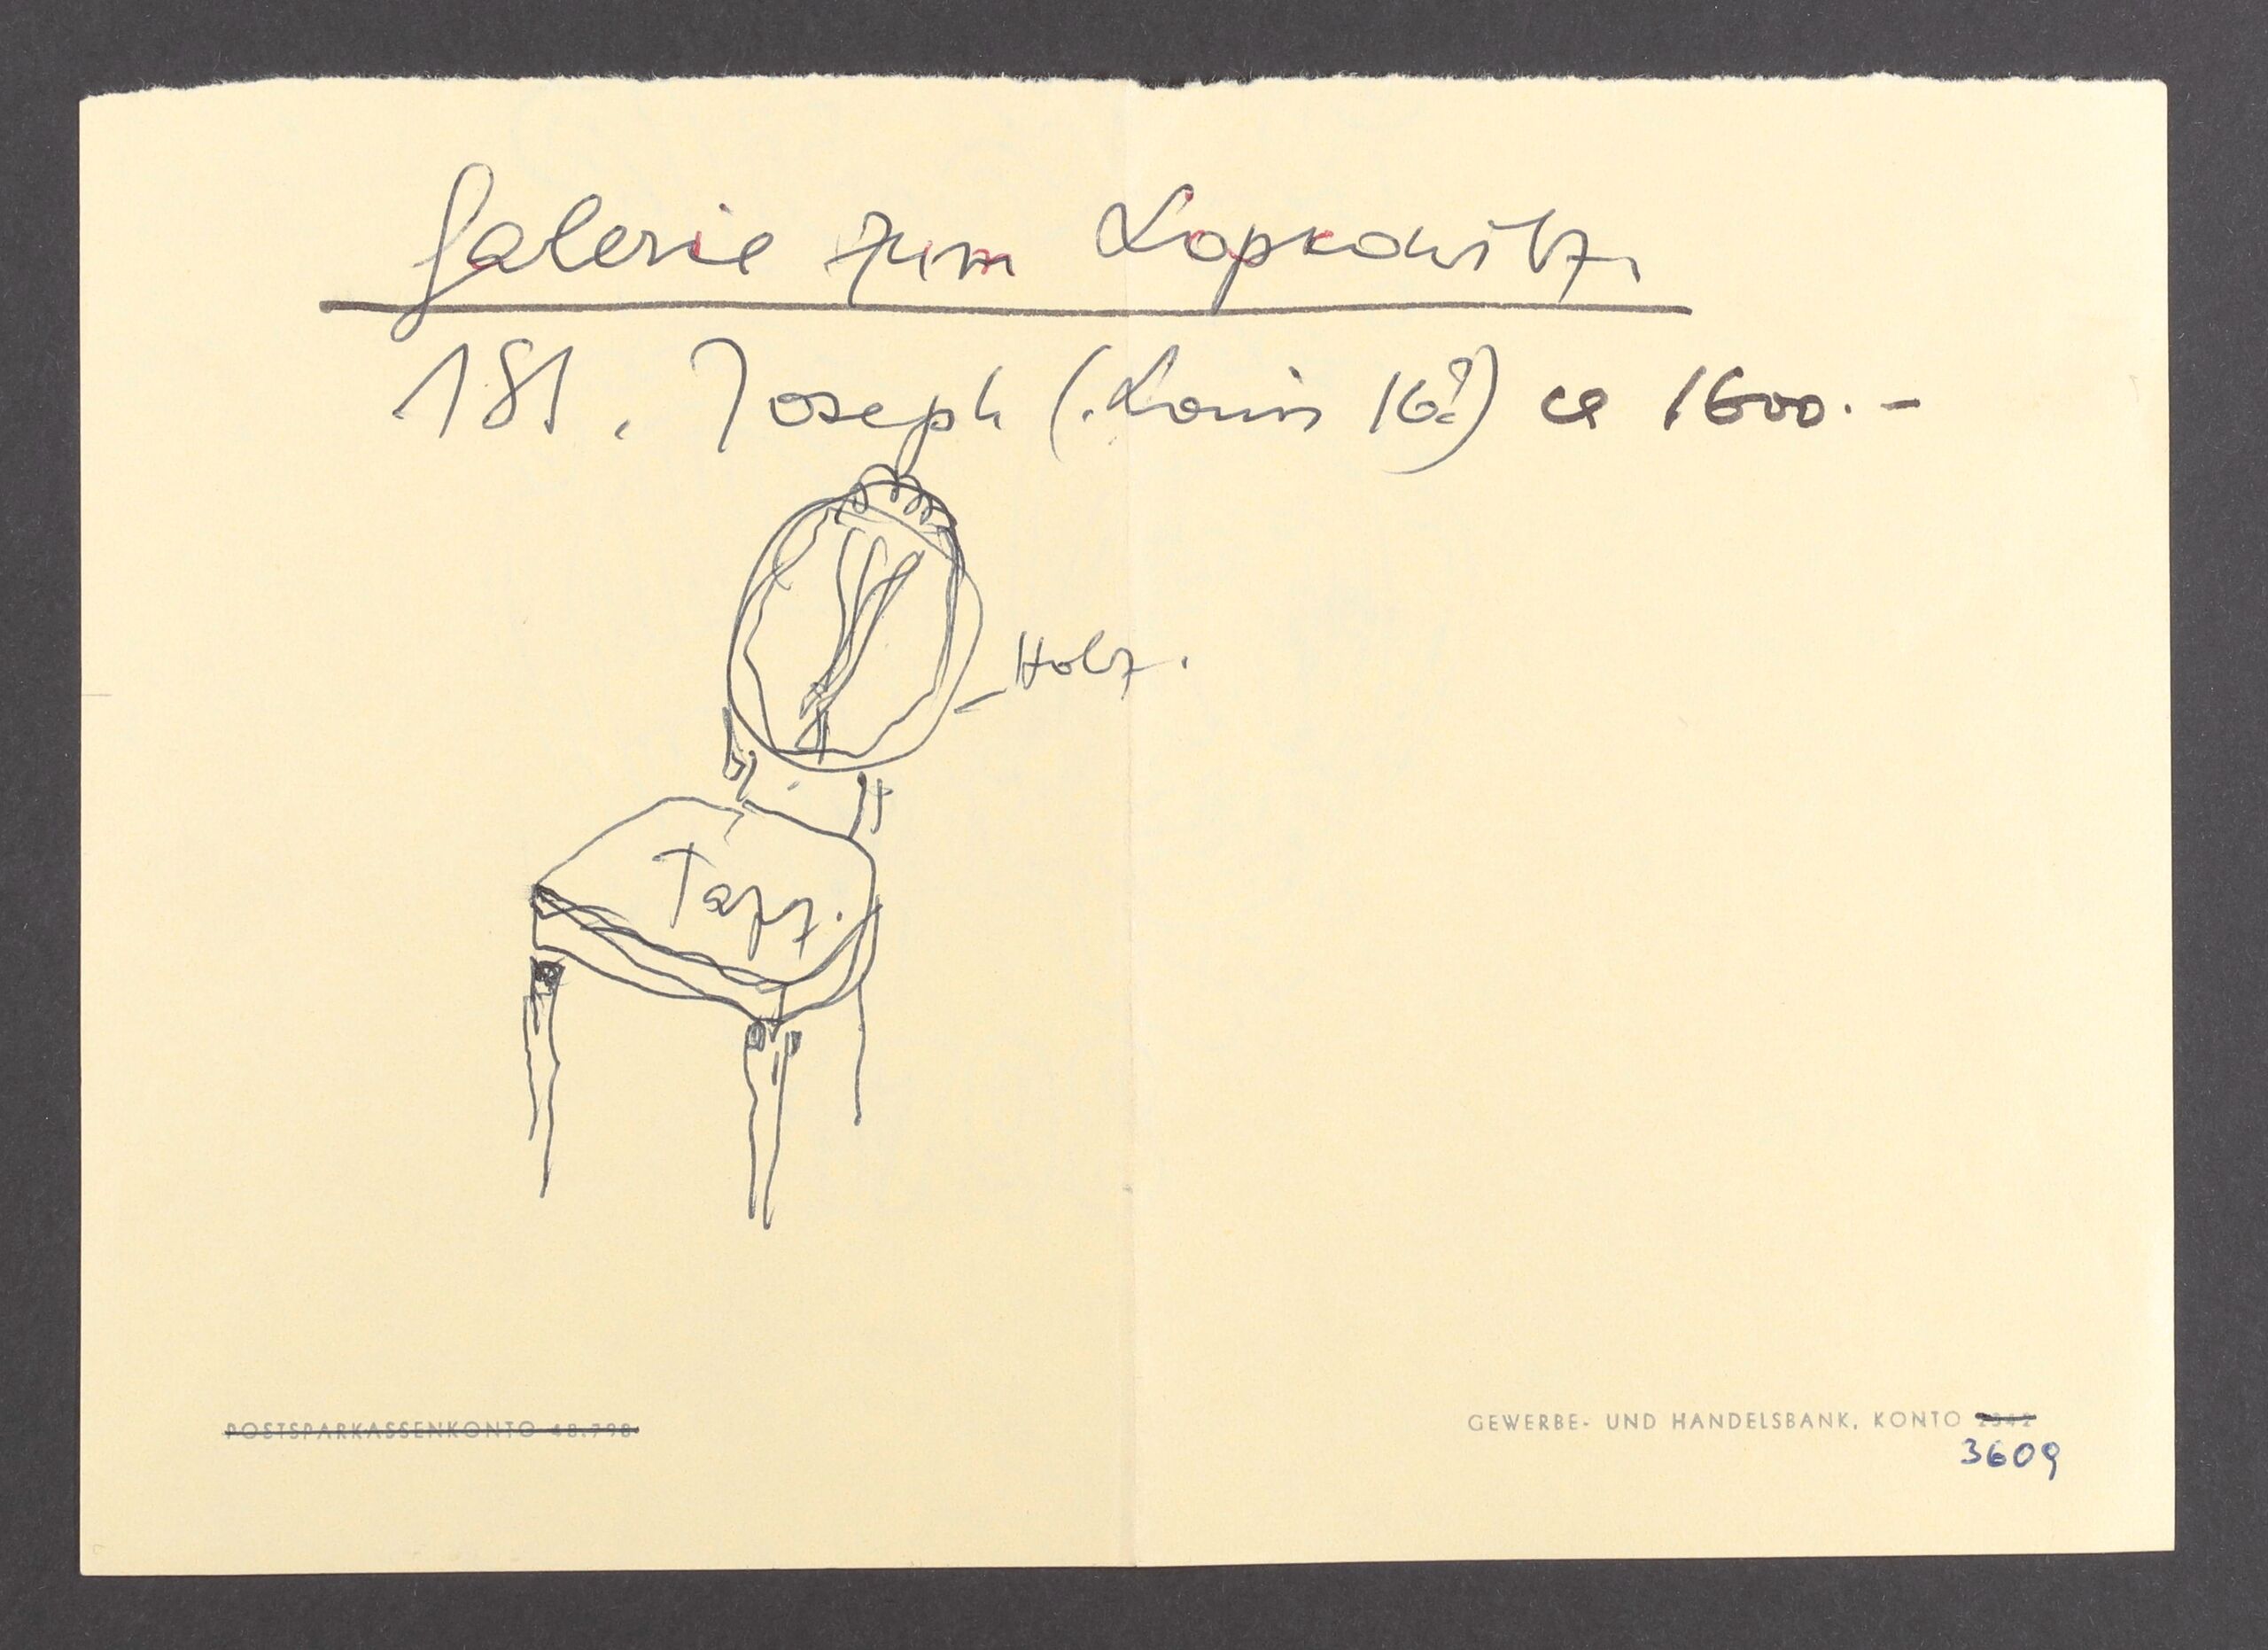 Galerie zum Lopkowitz.
181. Joseph (Louis 16?) ca 1600.-
Holz.
Tapz.
POSTSPARKASSENKONTO 48.798.
GEWERBE- UND HANDELSBANK, KONTO 2342
3609